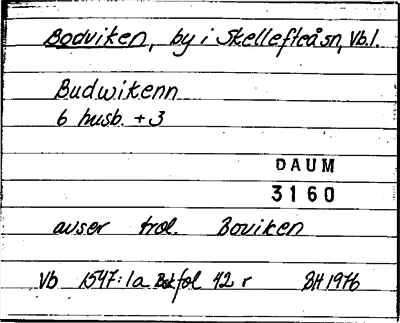 Bodviken, by i Skellefteå sn, Vb. l.
Budwikenn
6 husb. + 3
DAUM
3160
avser trol. Boviken
Vb 1547:1a fol 42 r BH 1976